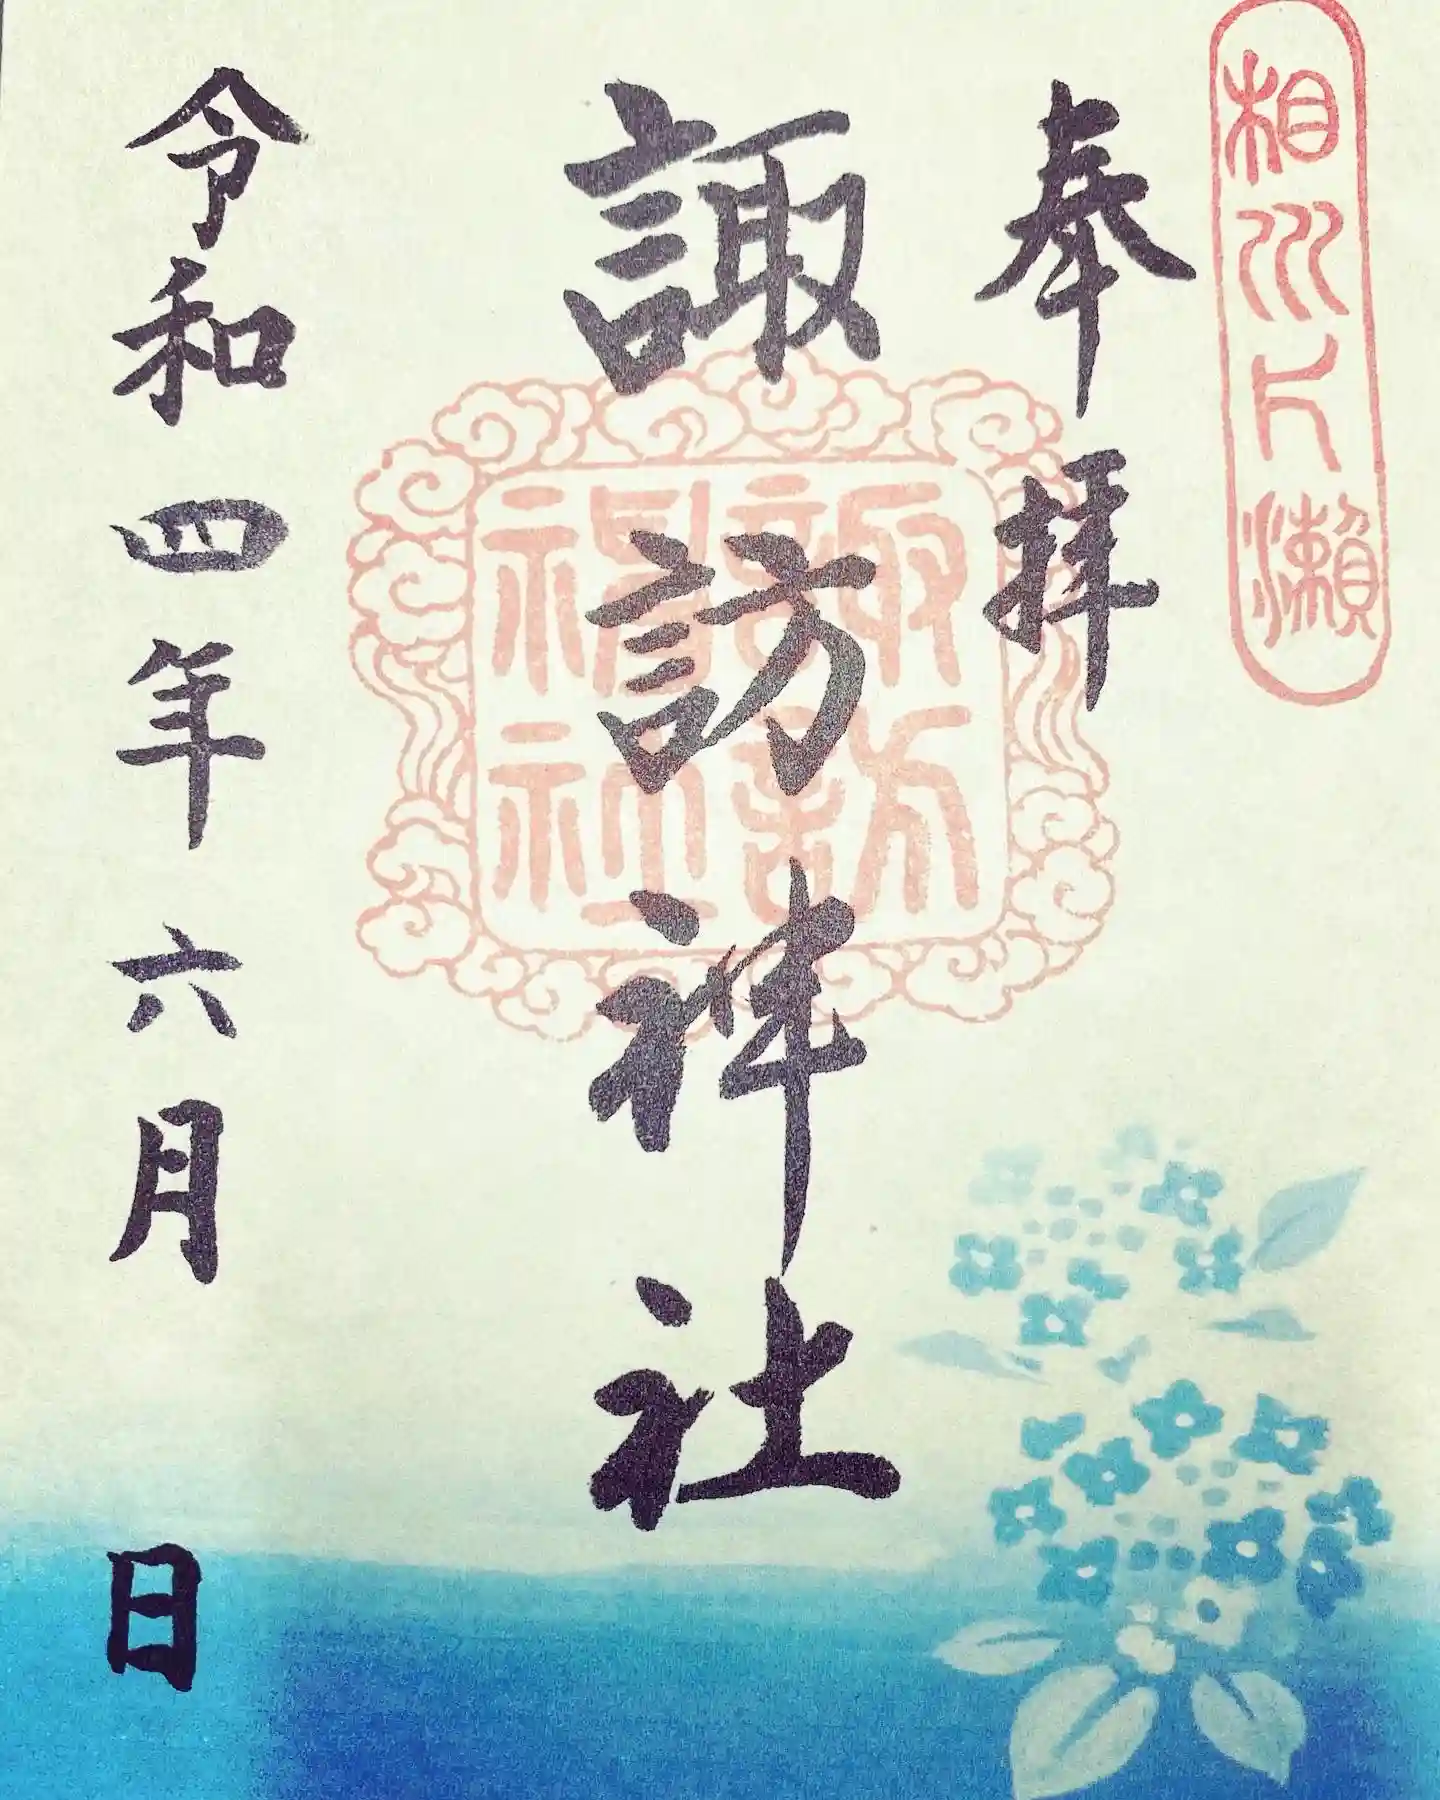 相州片瀨
奉拝
諏訪神社
諏訪
神社
令和四年六月 日